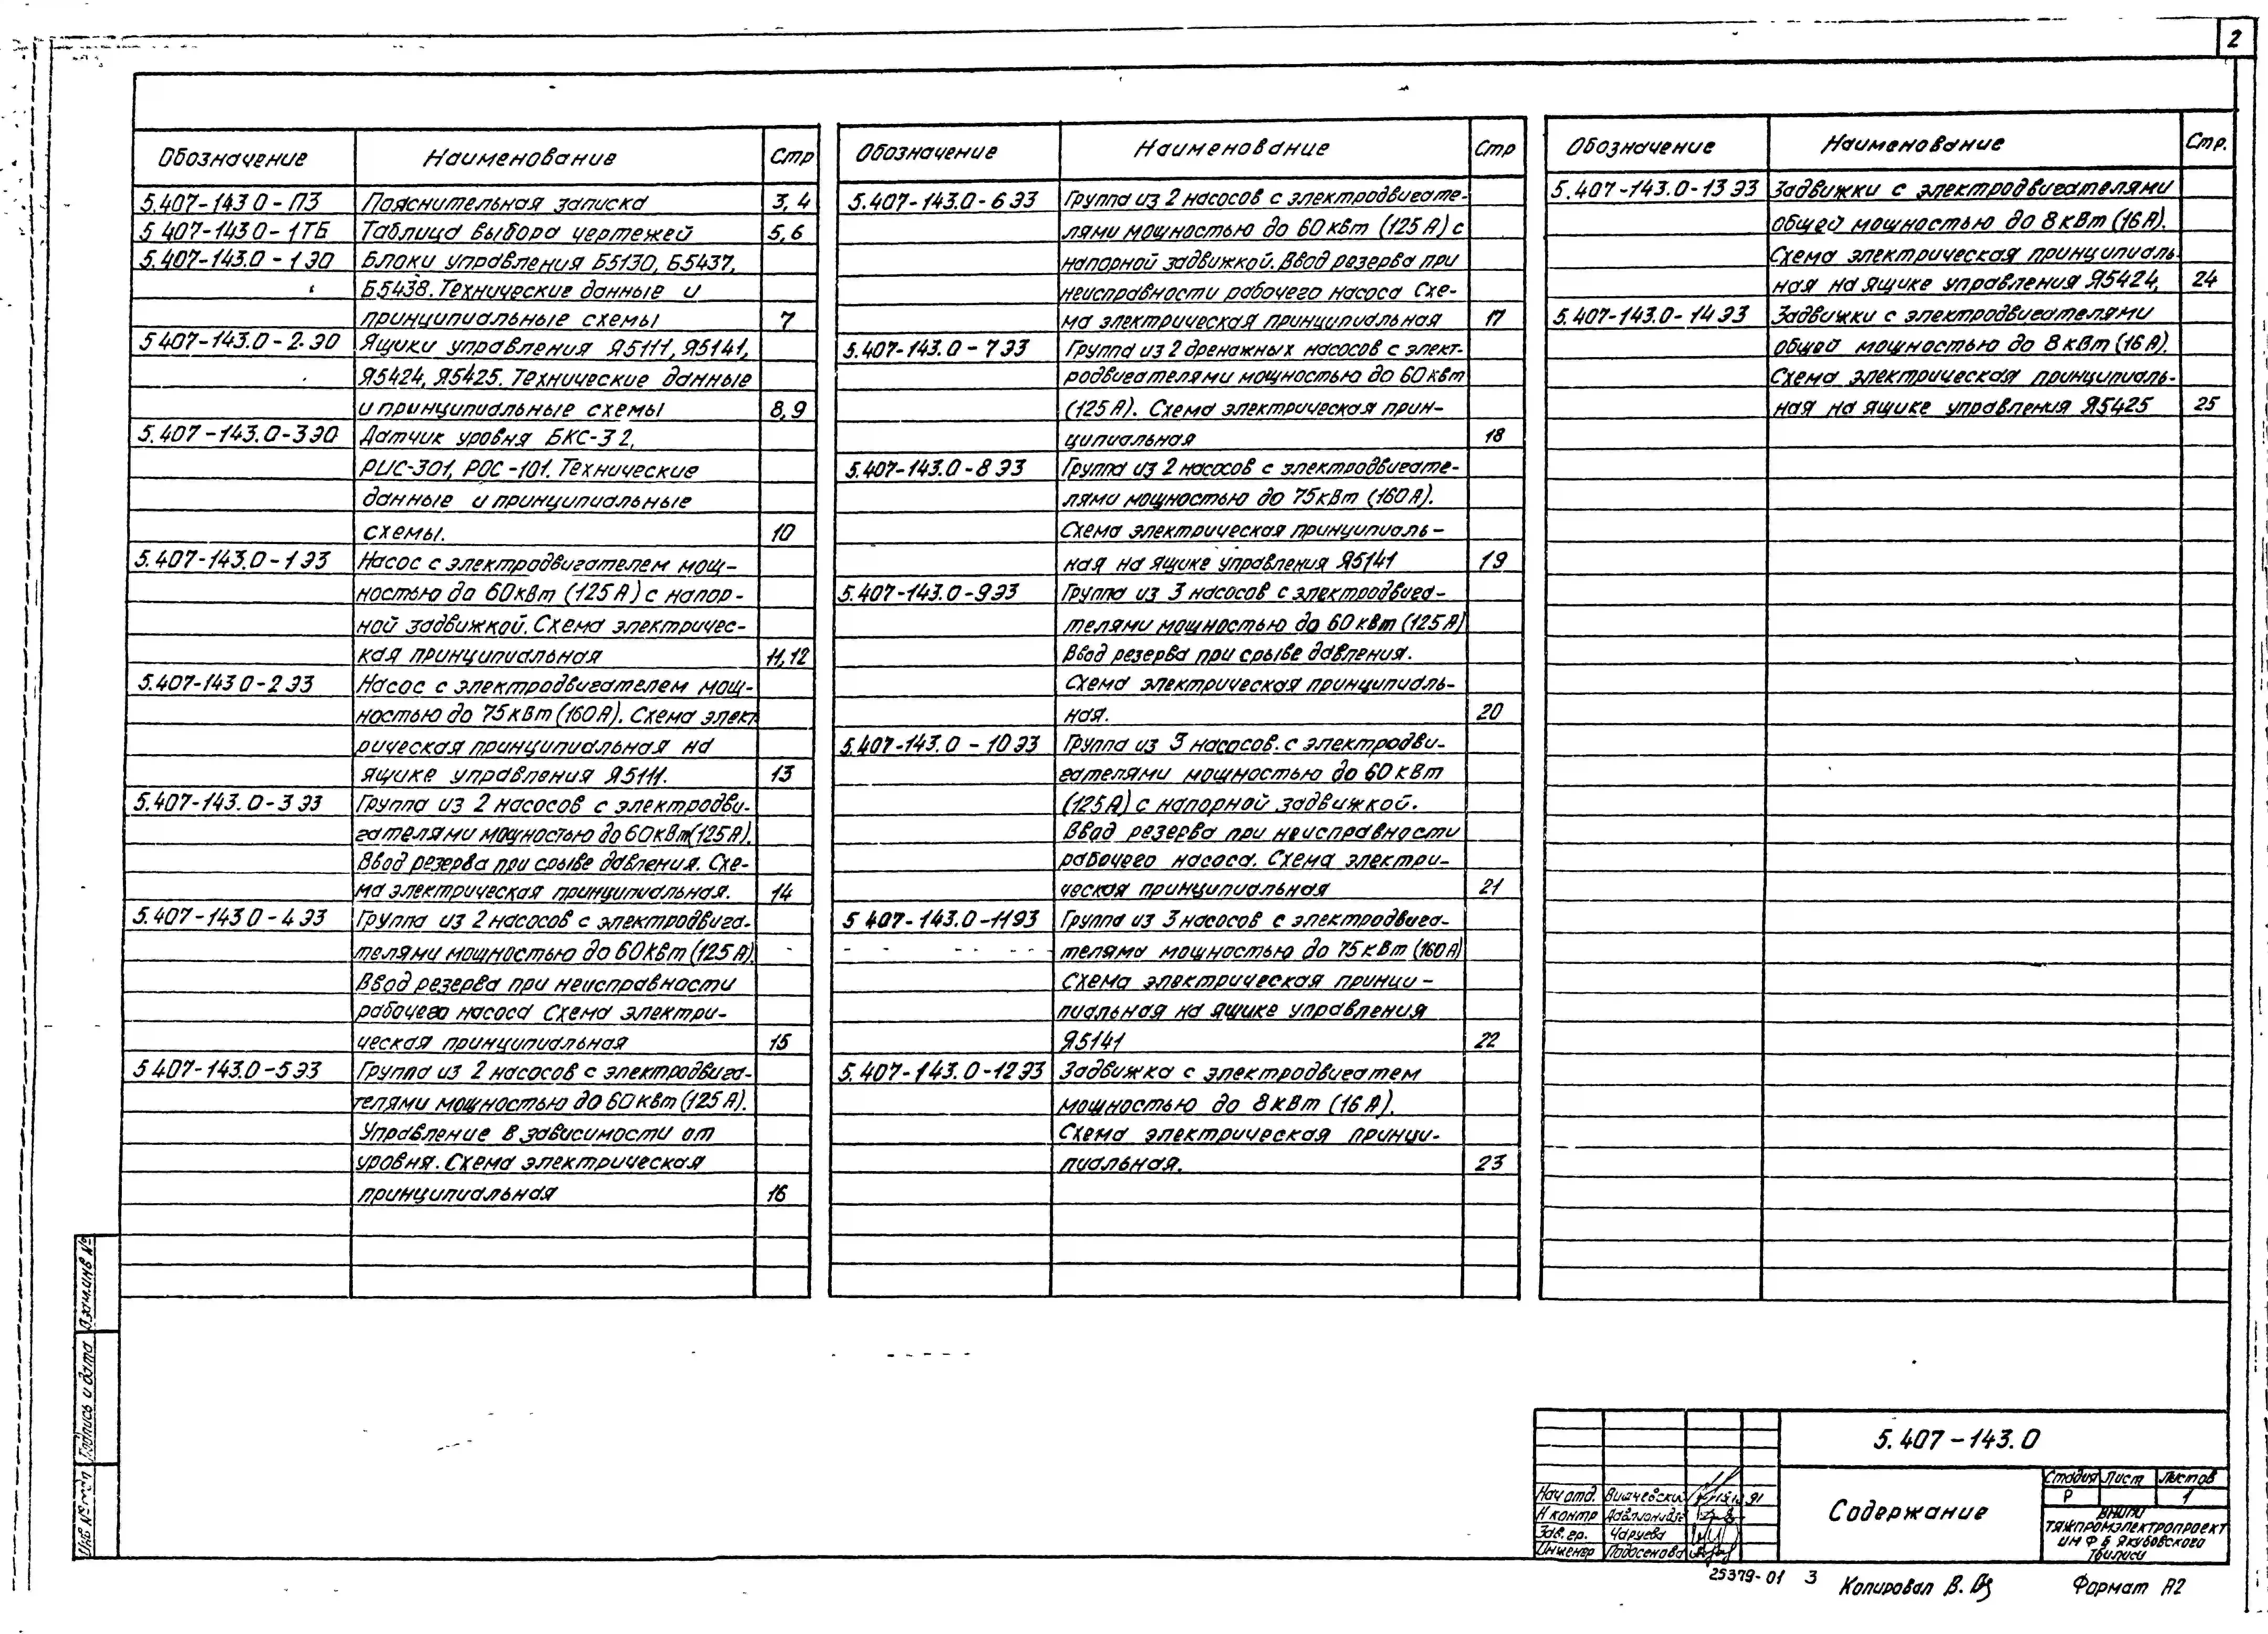 2
Обозначение Наименование Стр
5.407-143 0-ПЗ Пояснительная записка 3,4
5 407-143 0-1ТБ Таблица выбора чертежей 5,6
5.407-143.0-1ЭО Блоки управления Б5130, Б5437,
Б5438. Технические данные и
принципиальные схемы 7
5 407-143.0-2.ЭО Ящики управления Я5111, Я5141,
Я5424, Я5425. Технические данные
и принципиальные схемы 8,9
5.407-143.0-3ЭО Датчик уровня БКС-32,
РИС-301, РОС-101. Технические
данные и принципиальные
схемы. 10
5.407-143.0-1ЭЗ Насос с электродвигателем мощ-
ностью до 60кВт (125А) с напор-
ной задвижкой. Схема электричес-
кая принципиальная 11,12
5.407-143 0-2ЭЗ Насос с электродвигателем мощ-
ностью до 75кВт (160А). Схема элект
рическая принципиальная на
ящике управления Я5111. 13
5.407-143.0-3ЭЗ Группа из 2 насосов с электродви-
гателями мощностью до 60кВт(125А).
Ввод резерва при срыве давления. Схе-
ма электрическая принципиальная. 14
5.407-143 0-4ЭЗ Группа из 2 насосов с электродвига-
телями мощностью до 60кВт (125А).
Ввод резерва при неисправности
рабочего насоса Схема электри-
ческая принципиальная 15
5 407-143.0-5ЭЗ Группа из 2 насосов с электродвига-
телями мощностью до 60кВт (125А).
Управление в зависимости от
уровня. Схема электрическая
принципиальная 16
Обозначение Наименование Стр
5.407-143.0-6ЭЗ Группа из 2 насосов с электродвигате-
лями мощностью до 60кВт (125А) с
напорной задвижкой. Ввод резерва при
неисправности рабочего насоса Схе-
ма электрическая принципиальная 17
5.407-143.0-7ЭЗ Группа из 2 дренажных насосов с элект-
родвигателями мощностью до 60кВт
(125А). Схема электрическая прин-
ципиальная 18
5.407-143.0-8ЭЗ Группа из 2 насосов с электродвигате-
лями мощностью до 75кВт (160А).
Схема электрическая принципиаль-
ная на ящике управления Я5141 19
5.407-143.0-9ЭЗ Группа из 3 насосов с электродвига-
телями мощностью до 60кВт (125А)
Ввод резерва при срыве давления.
Схема электрическая принципиаль-
ная. 20
5.407-143.0-10ЭЗ Группа из 3 насосов. с электродви-
гателями мощностью до 60кВт
(125А) с напорной задвижкой.
Ввод резерва при неисправности
рабочего насоса. Схема электри-
ческая принципиальная 21
5 407-143.0-11ЭЗ Группа из 3 насосов с электродвига-
телями мощностью до 75кВт (160А)
Схема электрическая принци-
пиальная на ящике управления
Я5141 22
5.407-143.0-12ЭЗ Задвижка с электродвигатем
мощностью до 8кВт (16А).
Схема электрическая принци-
пиальная. 23
Обозначение Наименование Стр.
5.407-143.0-13ЭЗ Задвижки с электродвигателями
общей мощностью до 8кВт (16А).
Схема электрическая принципиаль
ная на ящике управления Я5424, 24
5.407-143.0-14ЭЗ Задвижки с электродвигателями
общей мощностью до 8кВт (16А).
Схема электрическая принципиаль-
ная на ящике управления Я5425 25
Взам.инв №
Подпись и дата
Инв № подл
5.407-143.0
Содержание
Стадия Лист Листов
Р 1
ВНИПИ
ТЯЖПРОМЭЛЕКТРОПРОЕКТ
им Ф Б Якубовского
Тбилиси
Нач отд. Вишневский
Н контр
Зав. гр. Чаруева
Инженер
25379-01 3
Копировал В.
Формат А2